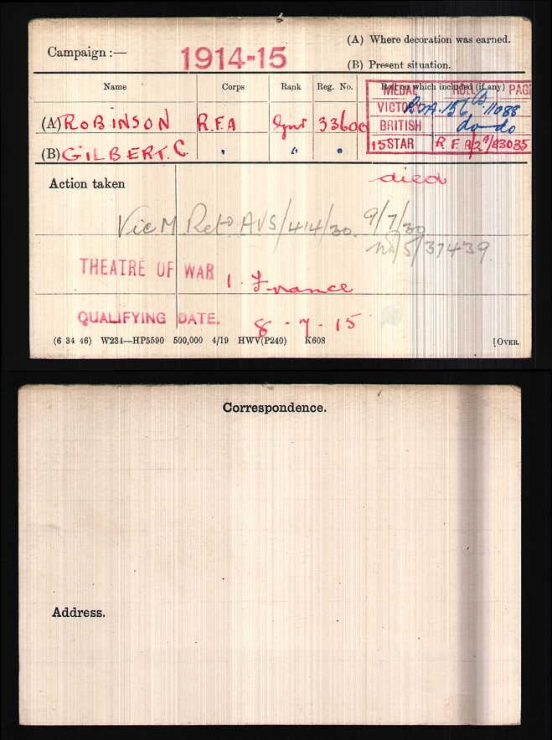 Campaign :— 1914-15 (A) Where decoration was earned.
(B) Present situation.
Name Corps Rank Reg. No. Roll on which included (if any)
MEDAL ROLL PAGE
VICTORY R.F.A. 156 B 11088
(A) ROBINSON R.F.A Gnr 33600
BRITISH do do
(B) GILBERT. C. " " "
15 STAR R.F.A.
Action taken died
Vic M Retd AVS/414/30. 9/7/30
THEATRE OF WAR 1. France
QUALIFYING DATE. 8 - 7 - 15
(6 34 46) W234—HP5590 500,000 4/19 HWV(P240) K608 [OVER.
Correspondence.
Address.